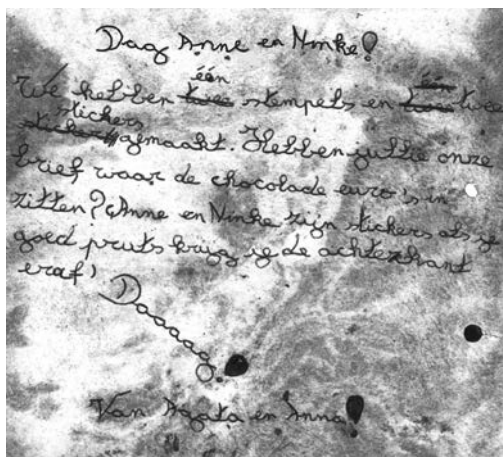 Dag Anne en Ninke!
één één
We hebben stempels en twee
stickers
gemaakt. Hebben jullie onze
brief waar de chocolade euro's in
zitten? Anne en Ninke zijn stickers als jy
goed pruts kryg jy de achterkant
eraf!
Daaaaag.
Van Agata en Anna!